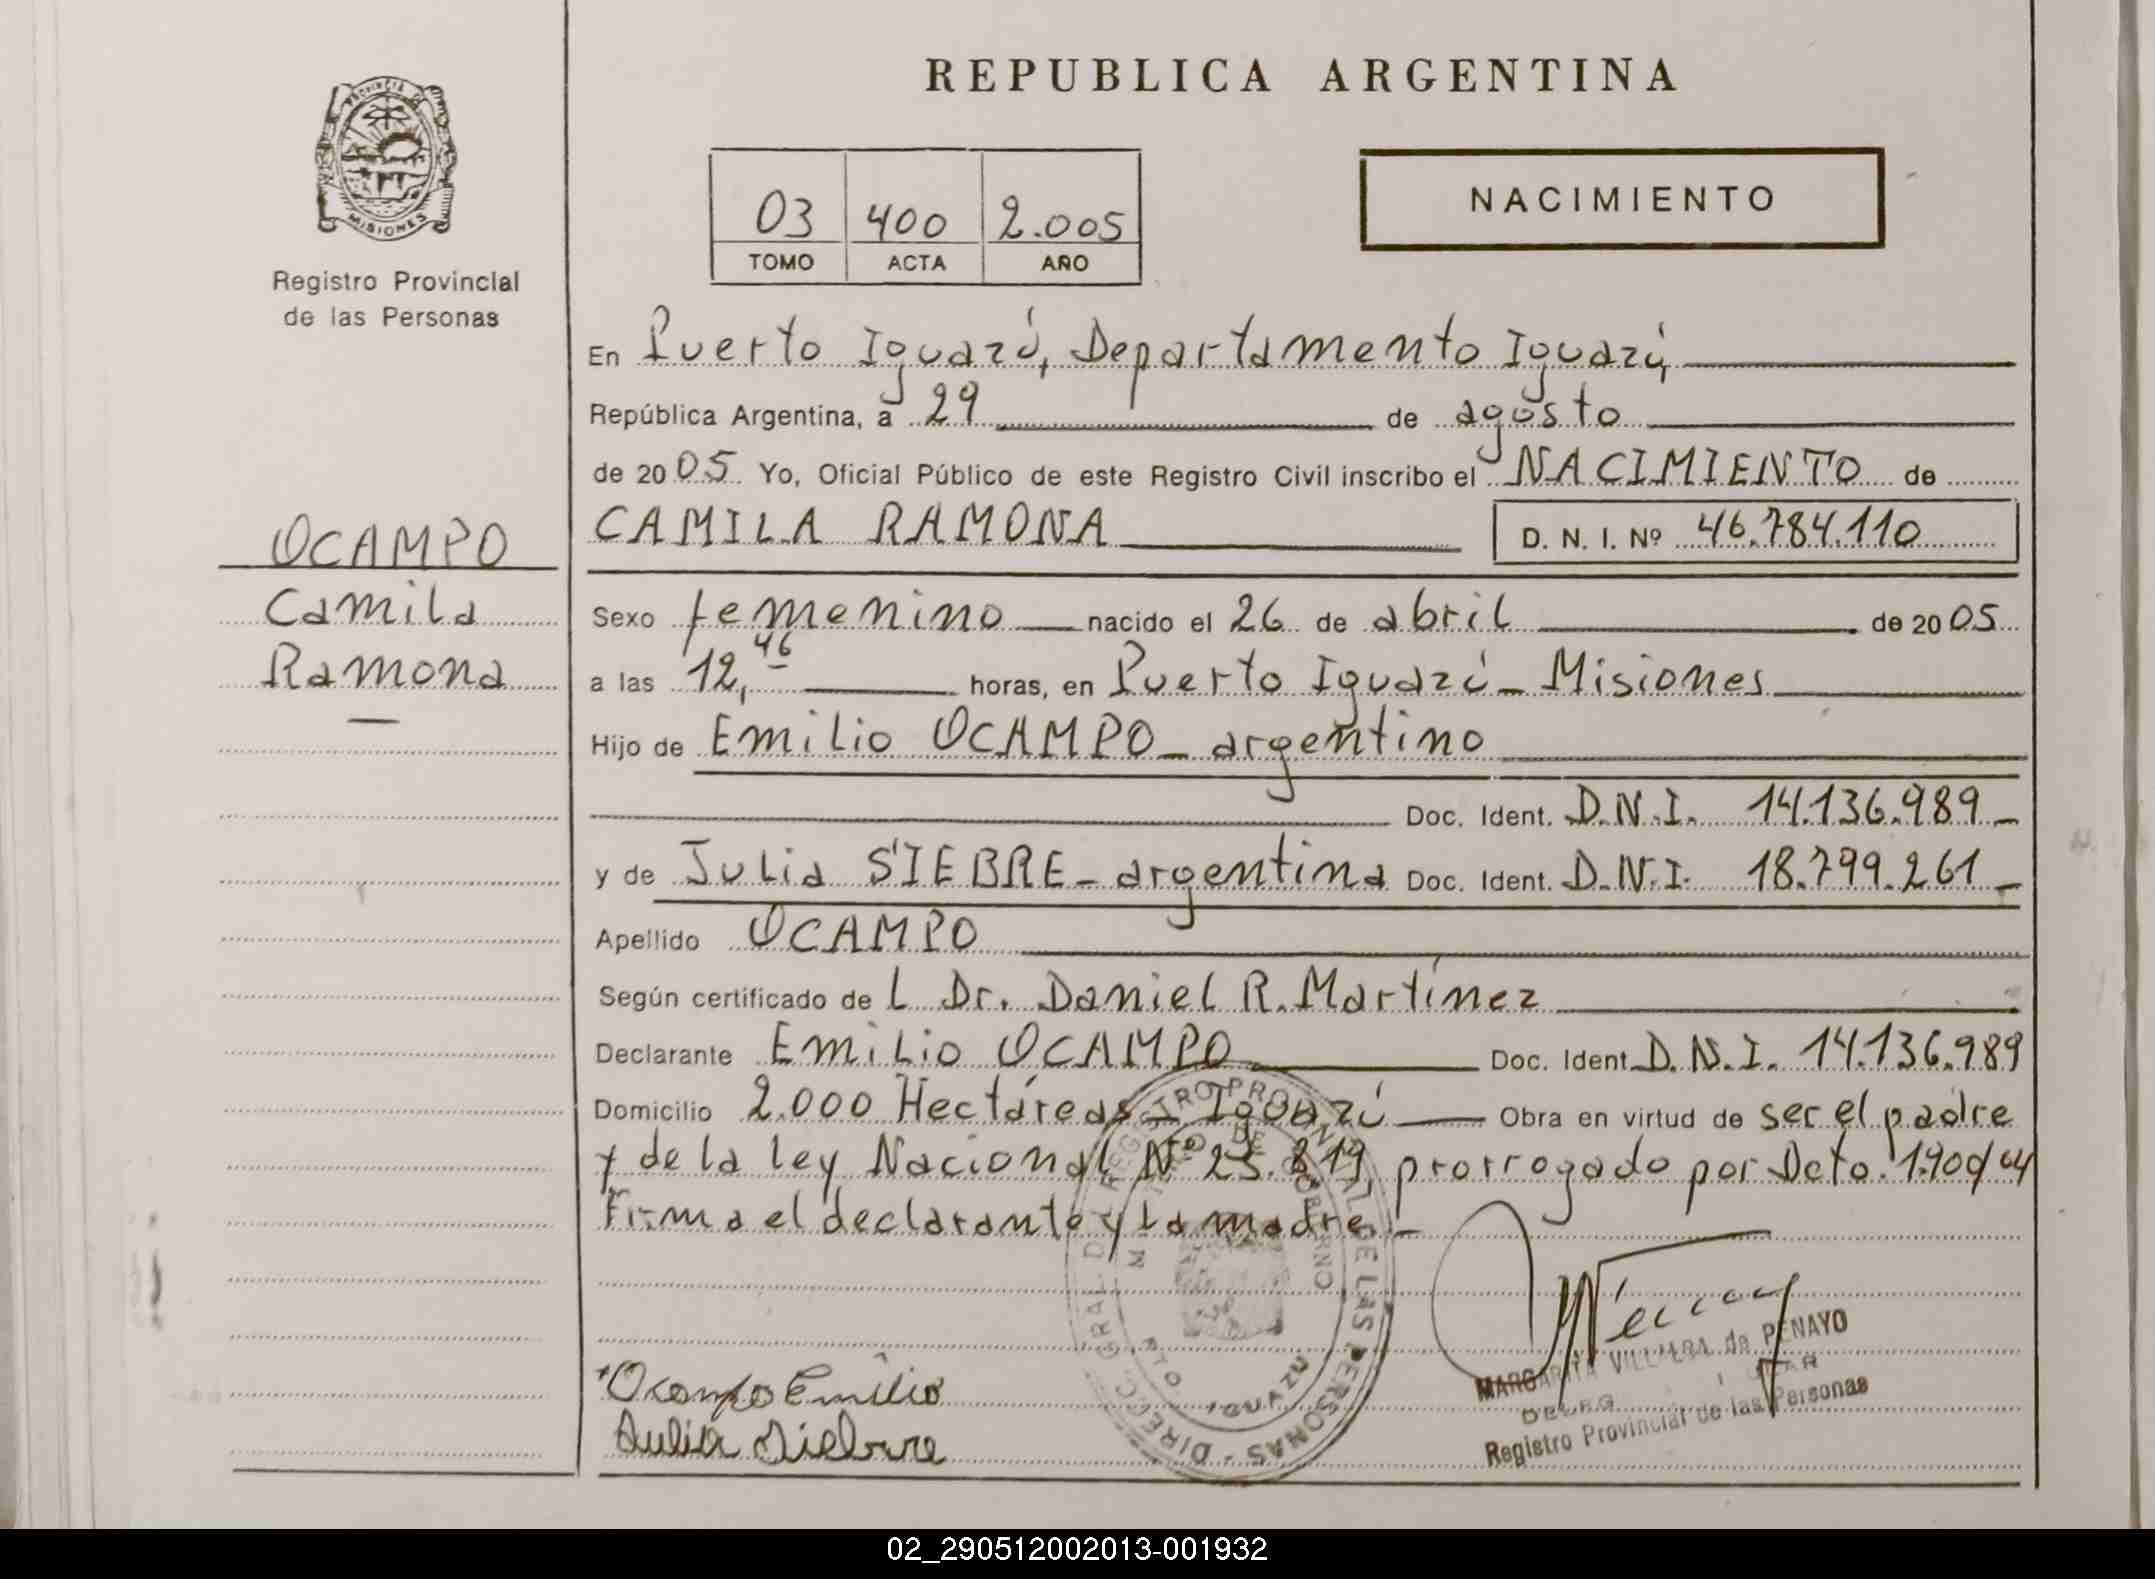 REPUBLICA ARGENTINA
PROVINCIA DE
MISIONES
Registro Provincial
de las Personas
03 400 2.005
TOMO ACTA AÑO
NACIMIENTO
En Puerto Iguazú, Departamento Iguazú,
República Argentina, a 29 de agosto
de 2005 Yo, Oficial Público de este Registro Civil inscribo el NACIMIENTO de
CAMILA RAMONA D. N. I. Nº 46.784.110
OCAMPO
Camila
Ramona
Sexo femenino nacido el 26 de abril de 2005
a las 12,46 horas, en Puerto Iguazú - Misiones
Hijo de Emilio OCAMPO - argentino
Doc. Ident. D.N.I. 14.136.989
y de Julia SIEBRE - argentina Doc. Ident. D.N.I. 18.799.261
Apellido OCAMPO
Según certificado de L Dr. Daniel R. Martínez
Declarante EMiLio OCAMPO Doc. Ident. D.N.I. 14.136.989
Domicilio 2.000 Hectáreas - Iguazú Obra en virtud de ser el padre
y de la ley Nacional Nº 25.819, prorrogado por Dcto. 1.900/04
Firma el declarante y la madre.-
DIRECC. GRAL DE REGISTRO PROVINCIAL DE LAS PERSONAS
MINISTERIO DE GOBIERNO
IGUAZU
Ocampo Emilio
Julia Siebre
MARGARITA VILLALBA de PENAYO
Registro Provincial de las Personas
02_290512002013-001932